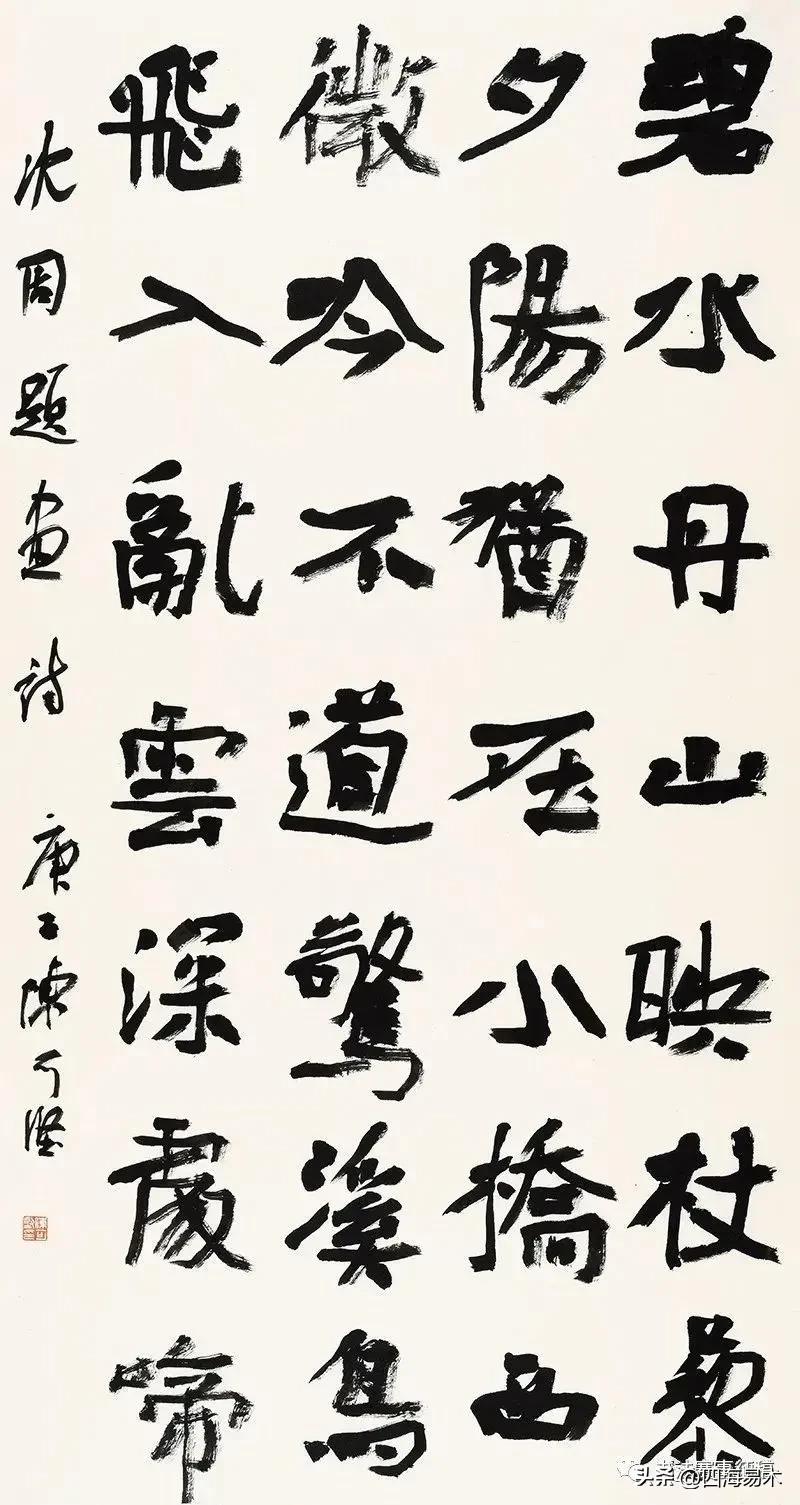 碧水丹山映杖藜
夕陽猶在小橋西
微吟不道驚溪鳥
飛入亂雲深處啼
沈周題画詩 庚子陳可賢
头条@四海易木